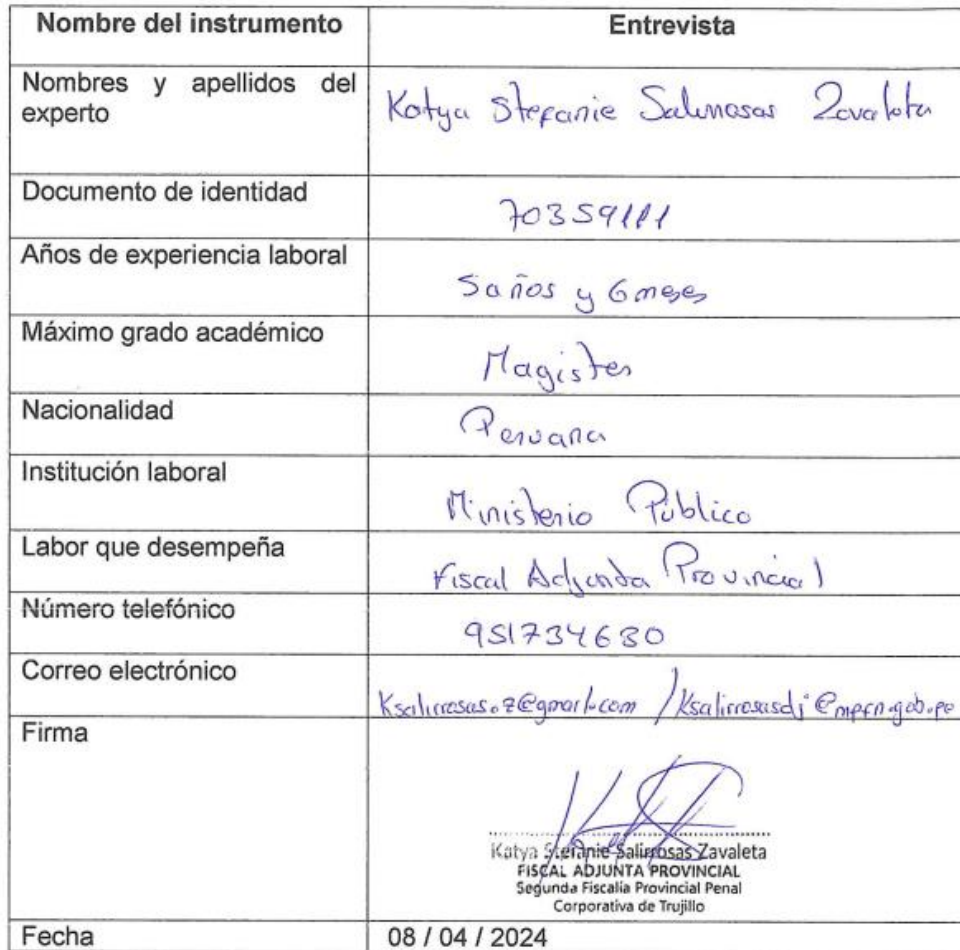 Nombre del instrumento Entrevista
Nombres y apellidos del
experto
Katya Stefanie Salirrosas Zavaleta
Documento de identidad
70359111
Años de experiencia laboral
5 años y 6 meses
Máximo grado académico
Magister
Nacionalidad
Peruana
Institución laboral
Ministerio Público
Labor que desempeña
Fiscal Adjunta Provincial
Número telefónico
951734630
Correo electrónico
Ksalirrosas.z@gmail.com / Ksalirrosasdj@mpfn.gob.pe
Firma
Katya Stefanie Salirrosas Zavaleta
FISCAL ADJUNTA PROVINCIAL
Segunda Fiscalía Provincial Penal
Corporativa de Trujillo
Fecha 08 / 04 / 2024